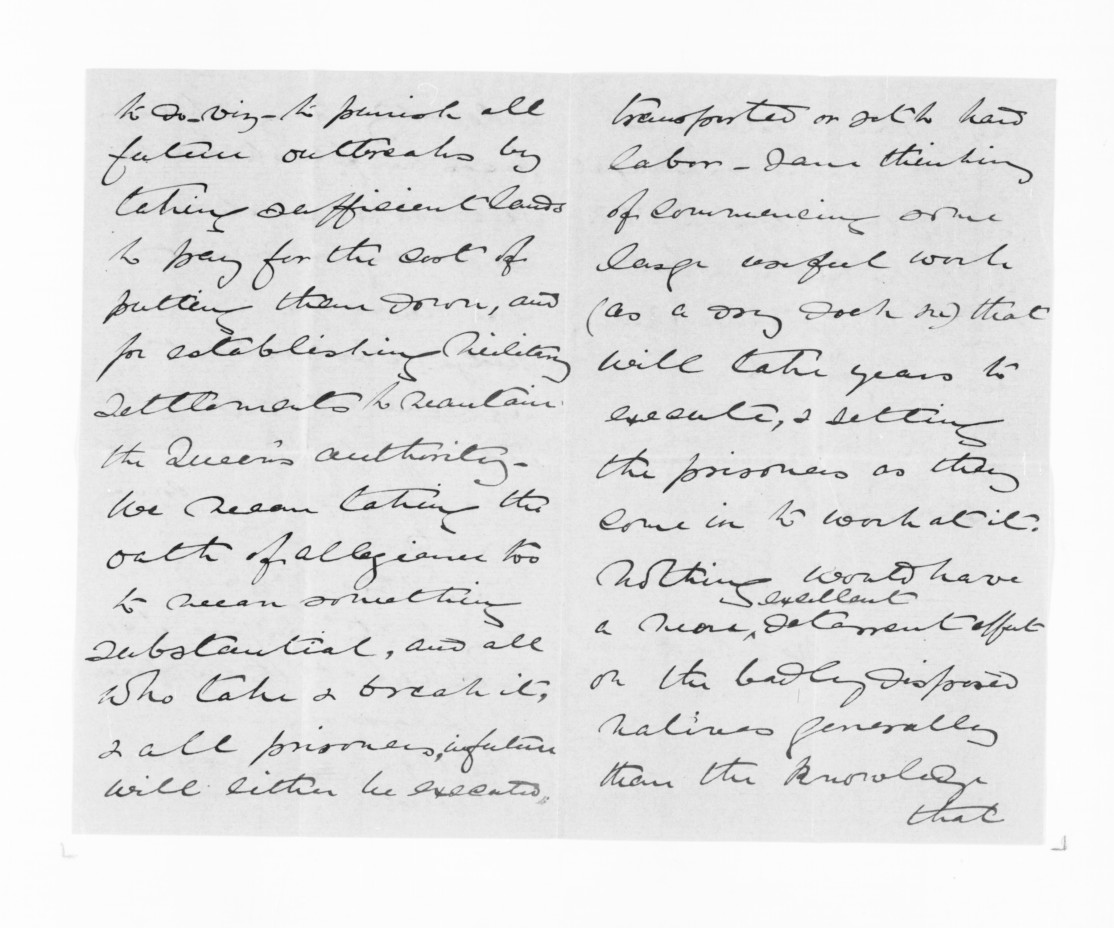 to do - viz - to punish all
future outbreaks by
taking sufficient lands
to pay for the cost of
putting them down, and
for establishing Military
Settlements to maintain
the Queen's authority -
We mean taking the
oath of allegiance too
to mean something
substantial, and all
who take & break it,
& all prisoners, in future
will either be executed,
transported or set to hard
labor - I am thinking
of commencing some
large useful work
(as a dry dock &c) that
will take years to
execute, & setting
the prisoners as they
come in to work at it.
Nothing would have
excellent
a more, deterrent effect
on the badly disposed
natives generally
than the knowledge
that